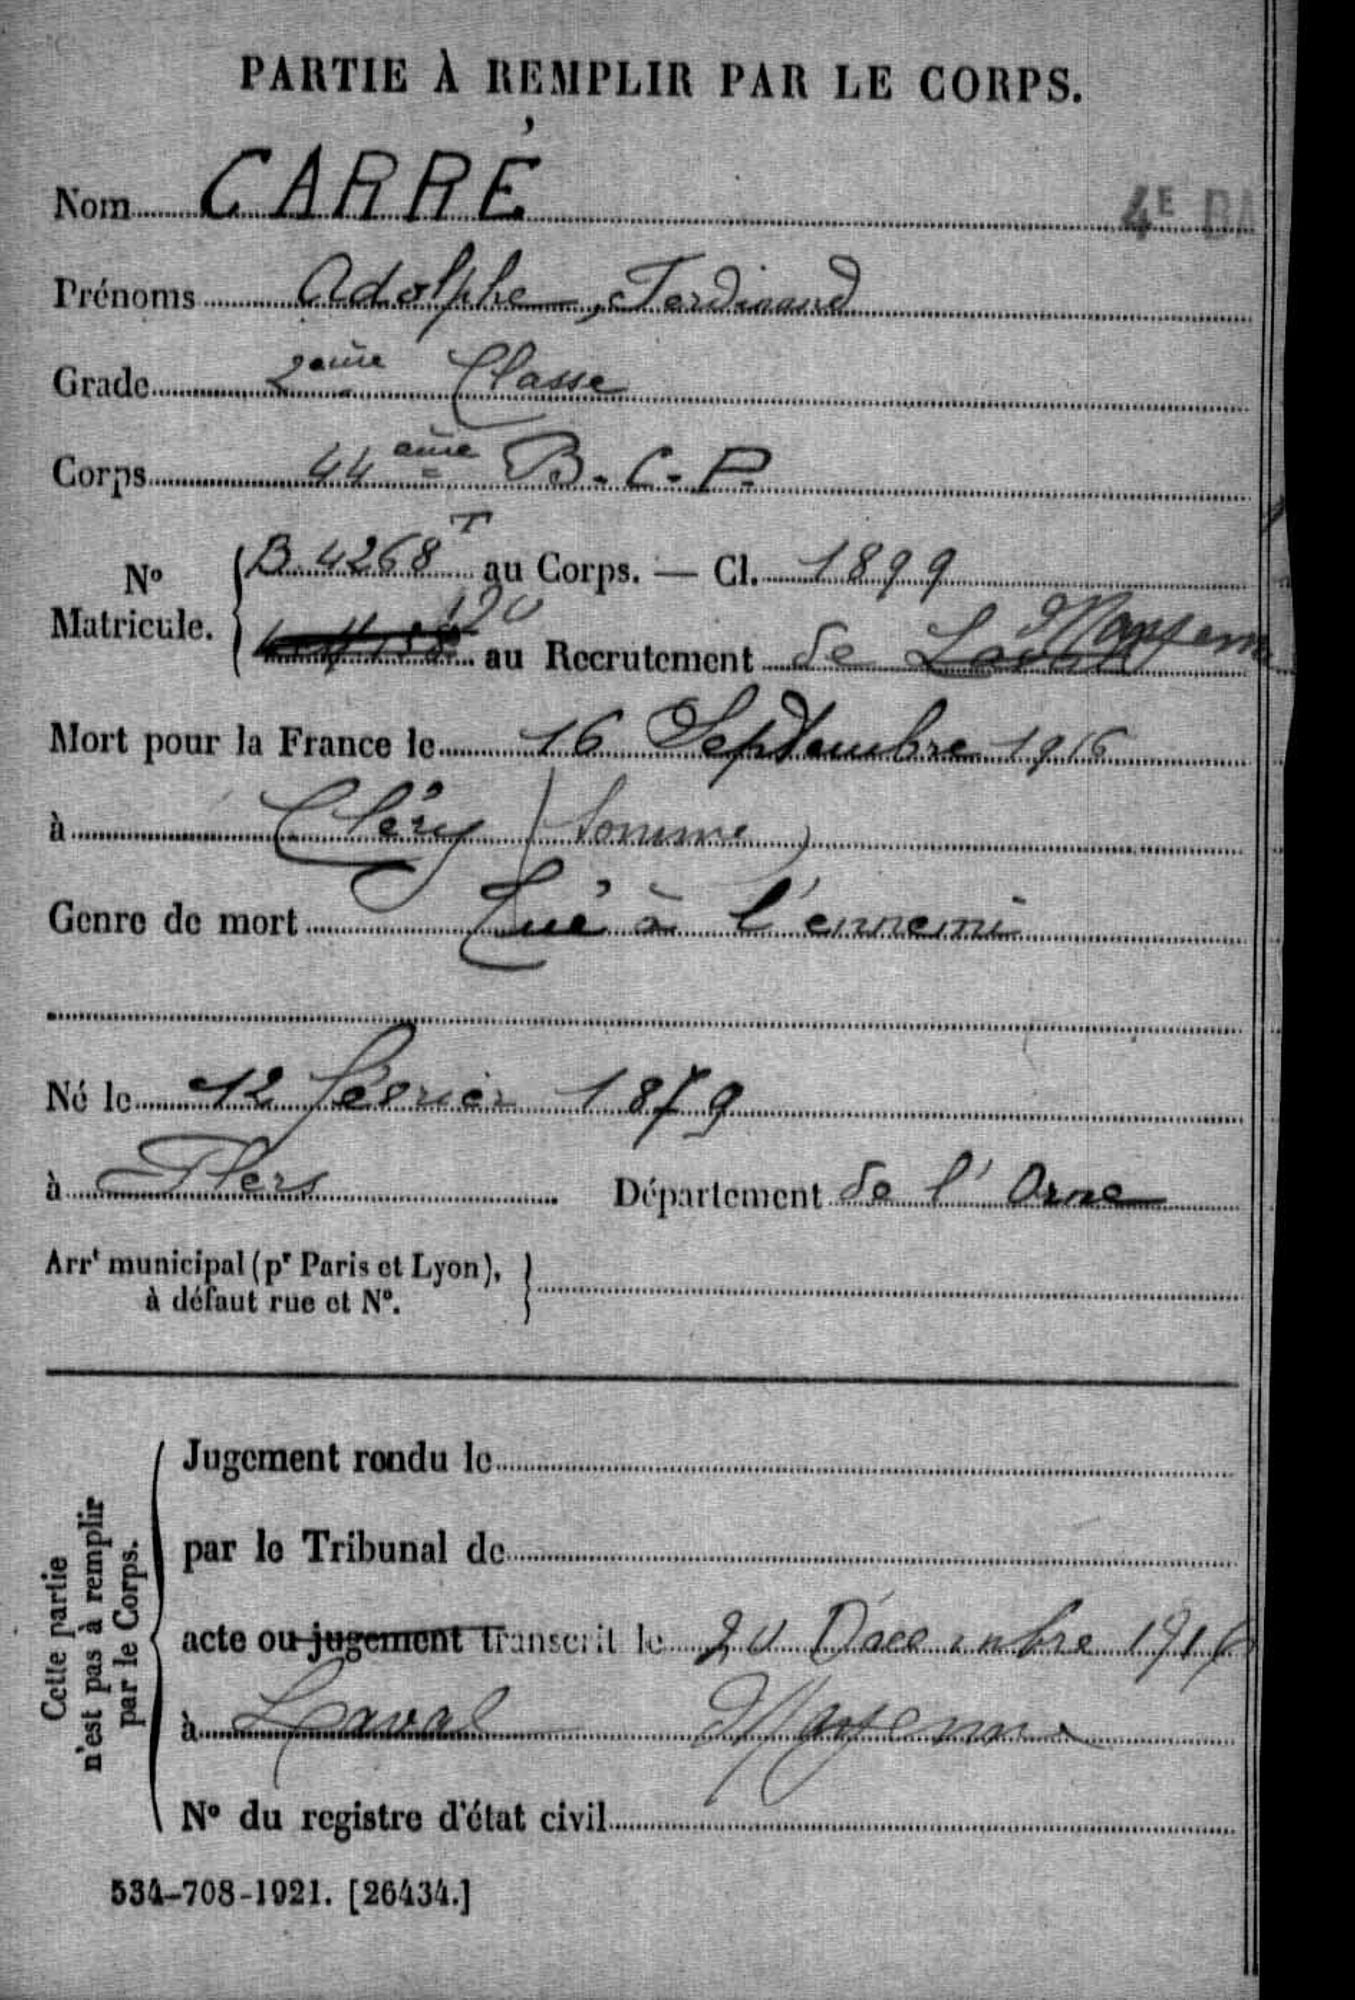 PARTIE À REMPLIR PAR LE CORPS.
Nom CARRÉ
4E BA
Prénoms Adolphe, Ferdinand
Grade 2ème Classe
Corps 44ème B.C.P.
No Matricule. B. 4268 T au Corps. — Cl. 1899
120 au Recrutement de Laval Mayenne
Mort pour la France le 16 Septembre 1916
à Cléry (Somme)
Genre de mort Tué à l'ennemi
Né le 12 février 1879
à Flers Département de l'Orne
Arrt municipal (pr Paris et Lyon),
à défaut rue et No.
Cette partie
n'est pas à remplir
par le Corps.
Jugement rendu le
par le Tribunal de
acte ou jugement transcrit le 20 Décembre 1916
à Laval Mayenne
No du registre d'état civil
534-708-1921. [26434.]